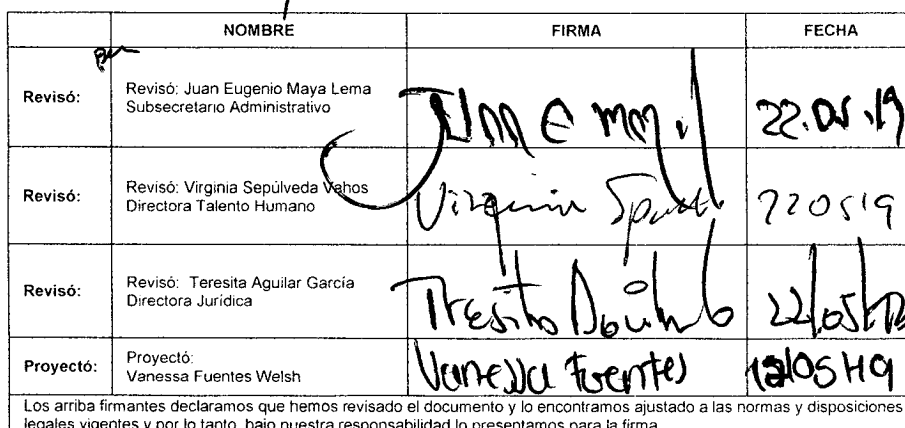 NOMBRE FIRMA FECHA
Revisó: Revisó: Juan Eugenio Maya Lema
Subsecretario Administrativo
22.05.19
Revisó: Revisó: Virginia Sepúlveda Vahos
Directora Talento Humano
Virginia 220519
Revisó: Revisó: Teresita Aguilar García
Directora Jurídica
22/05/19
Proyectó: Proyectó:
Vanessa Fuentes Welsh
Vanessa Fuentes
Los arriba firmantes declaramos que hemos revisado el documento y lo encontramos ajustado a las normas y disposiciones
legales vigentes y por lo tanto, bajo nuestra responsabilidad lo presentamos para la firma